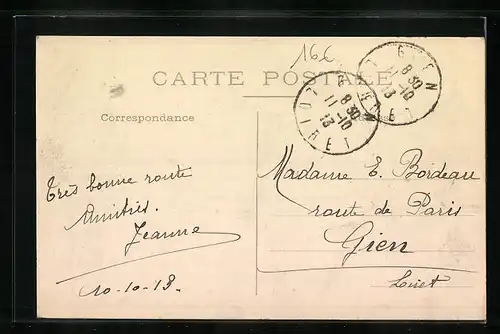 16€
CARTE POSTALE
GIEN
8 30
11 -10
13
LOIRET
GIEN
8 30
11 -10
13
LOIRET
Correspondance
Très bonne route
Amitiés.
Jeanne
10-10-13.
Madame E. Bordeau
route de Paris
Gien
Loiret